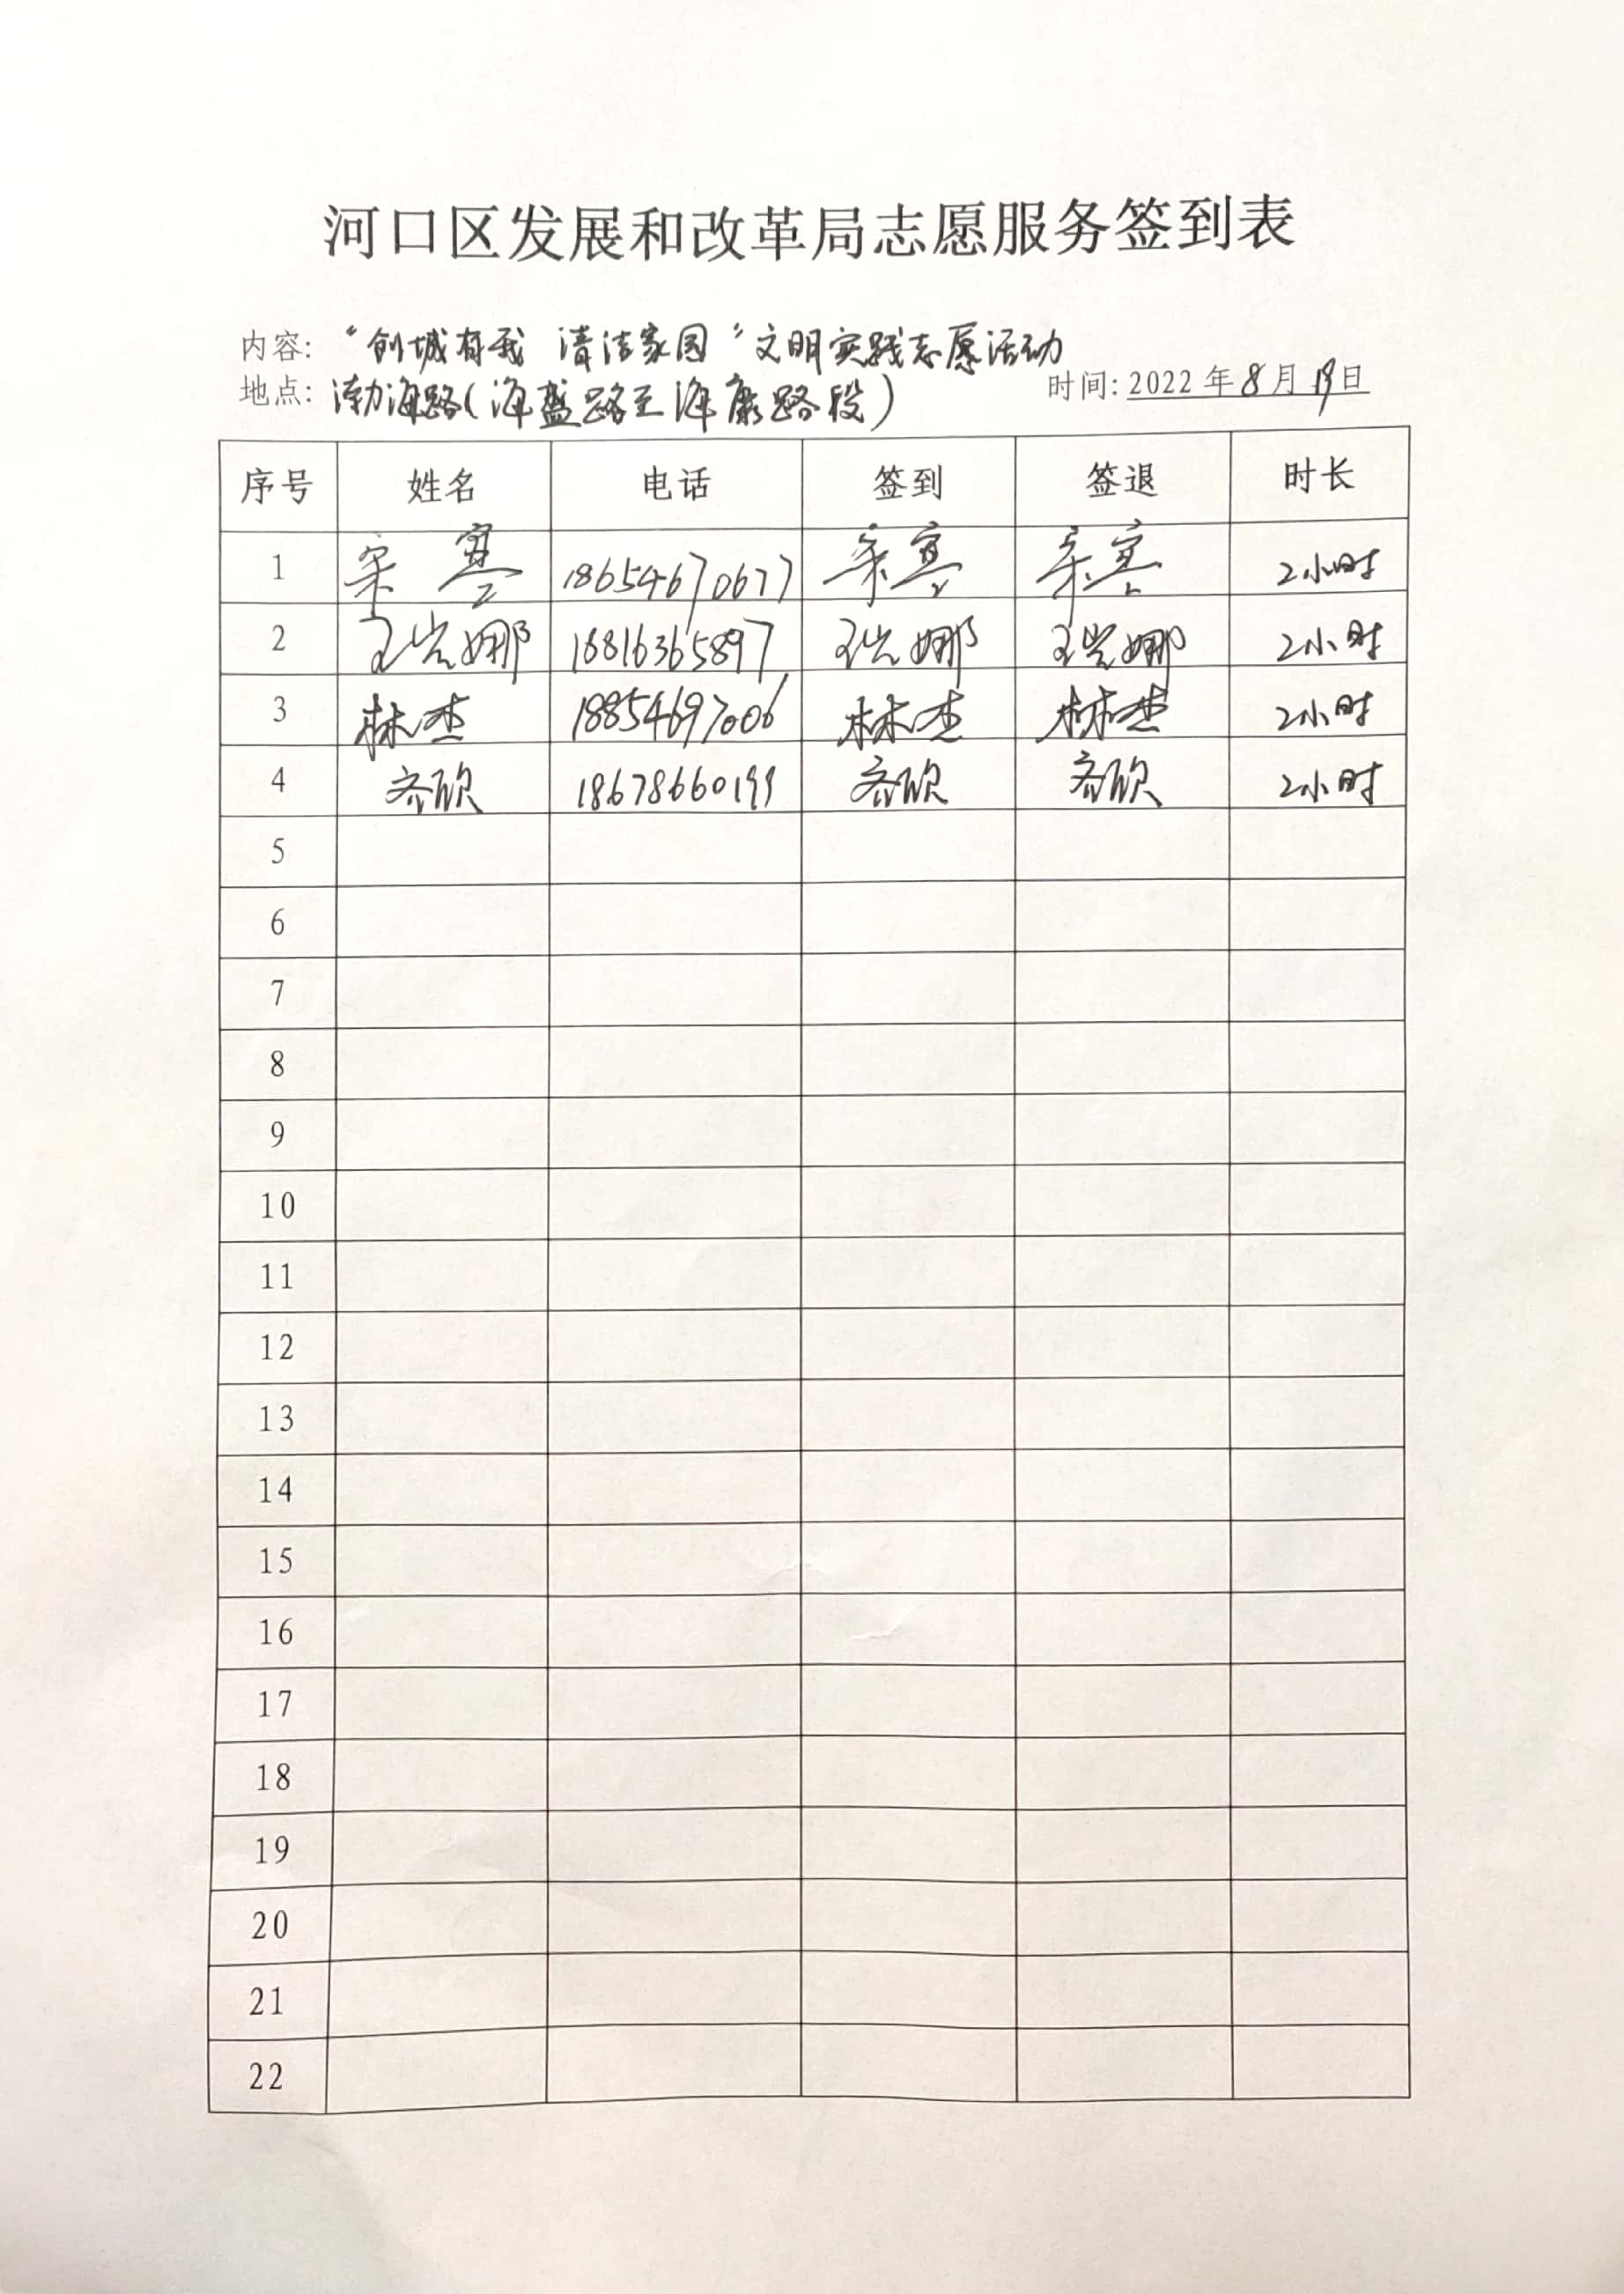 河口区发展和改革局志愿服务签到表
内容: “创城有我 清洁家园”文明实践志愿活动
地点: 渤海路(海盛路至海康路段) 时间: 2022年8月19日
序号 姓名 电话 签到 签退 时长
1 18654670677 2小时
2 王岩娜 16816365897 王岩娜 王岩娜 2小时
3 林杰 18854697006 林杰 林杰 2小时
4 齐欣 18678660199 齐欣 齐欣 2小时
5
6
7
8
9
10
11
12
13
14
15
16
17
18
19
20
21
22